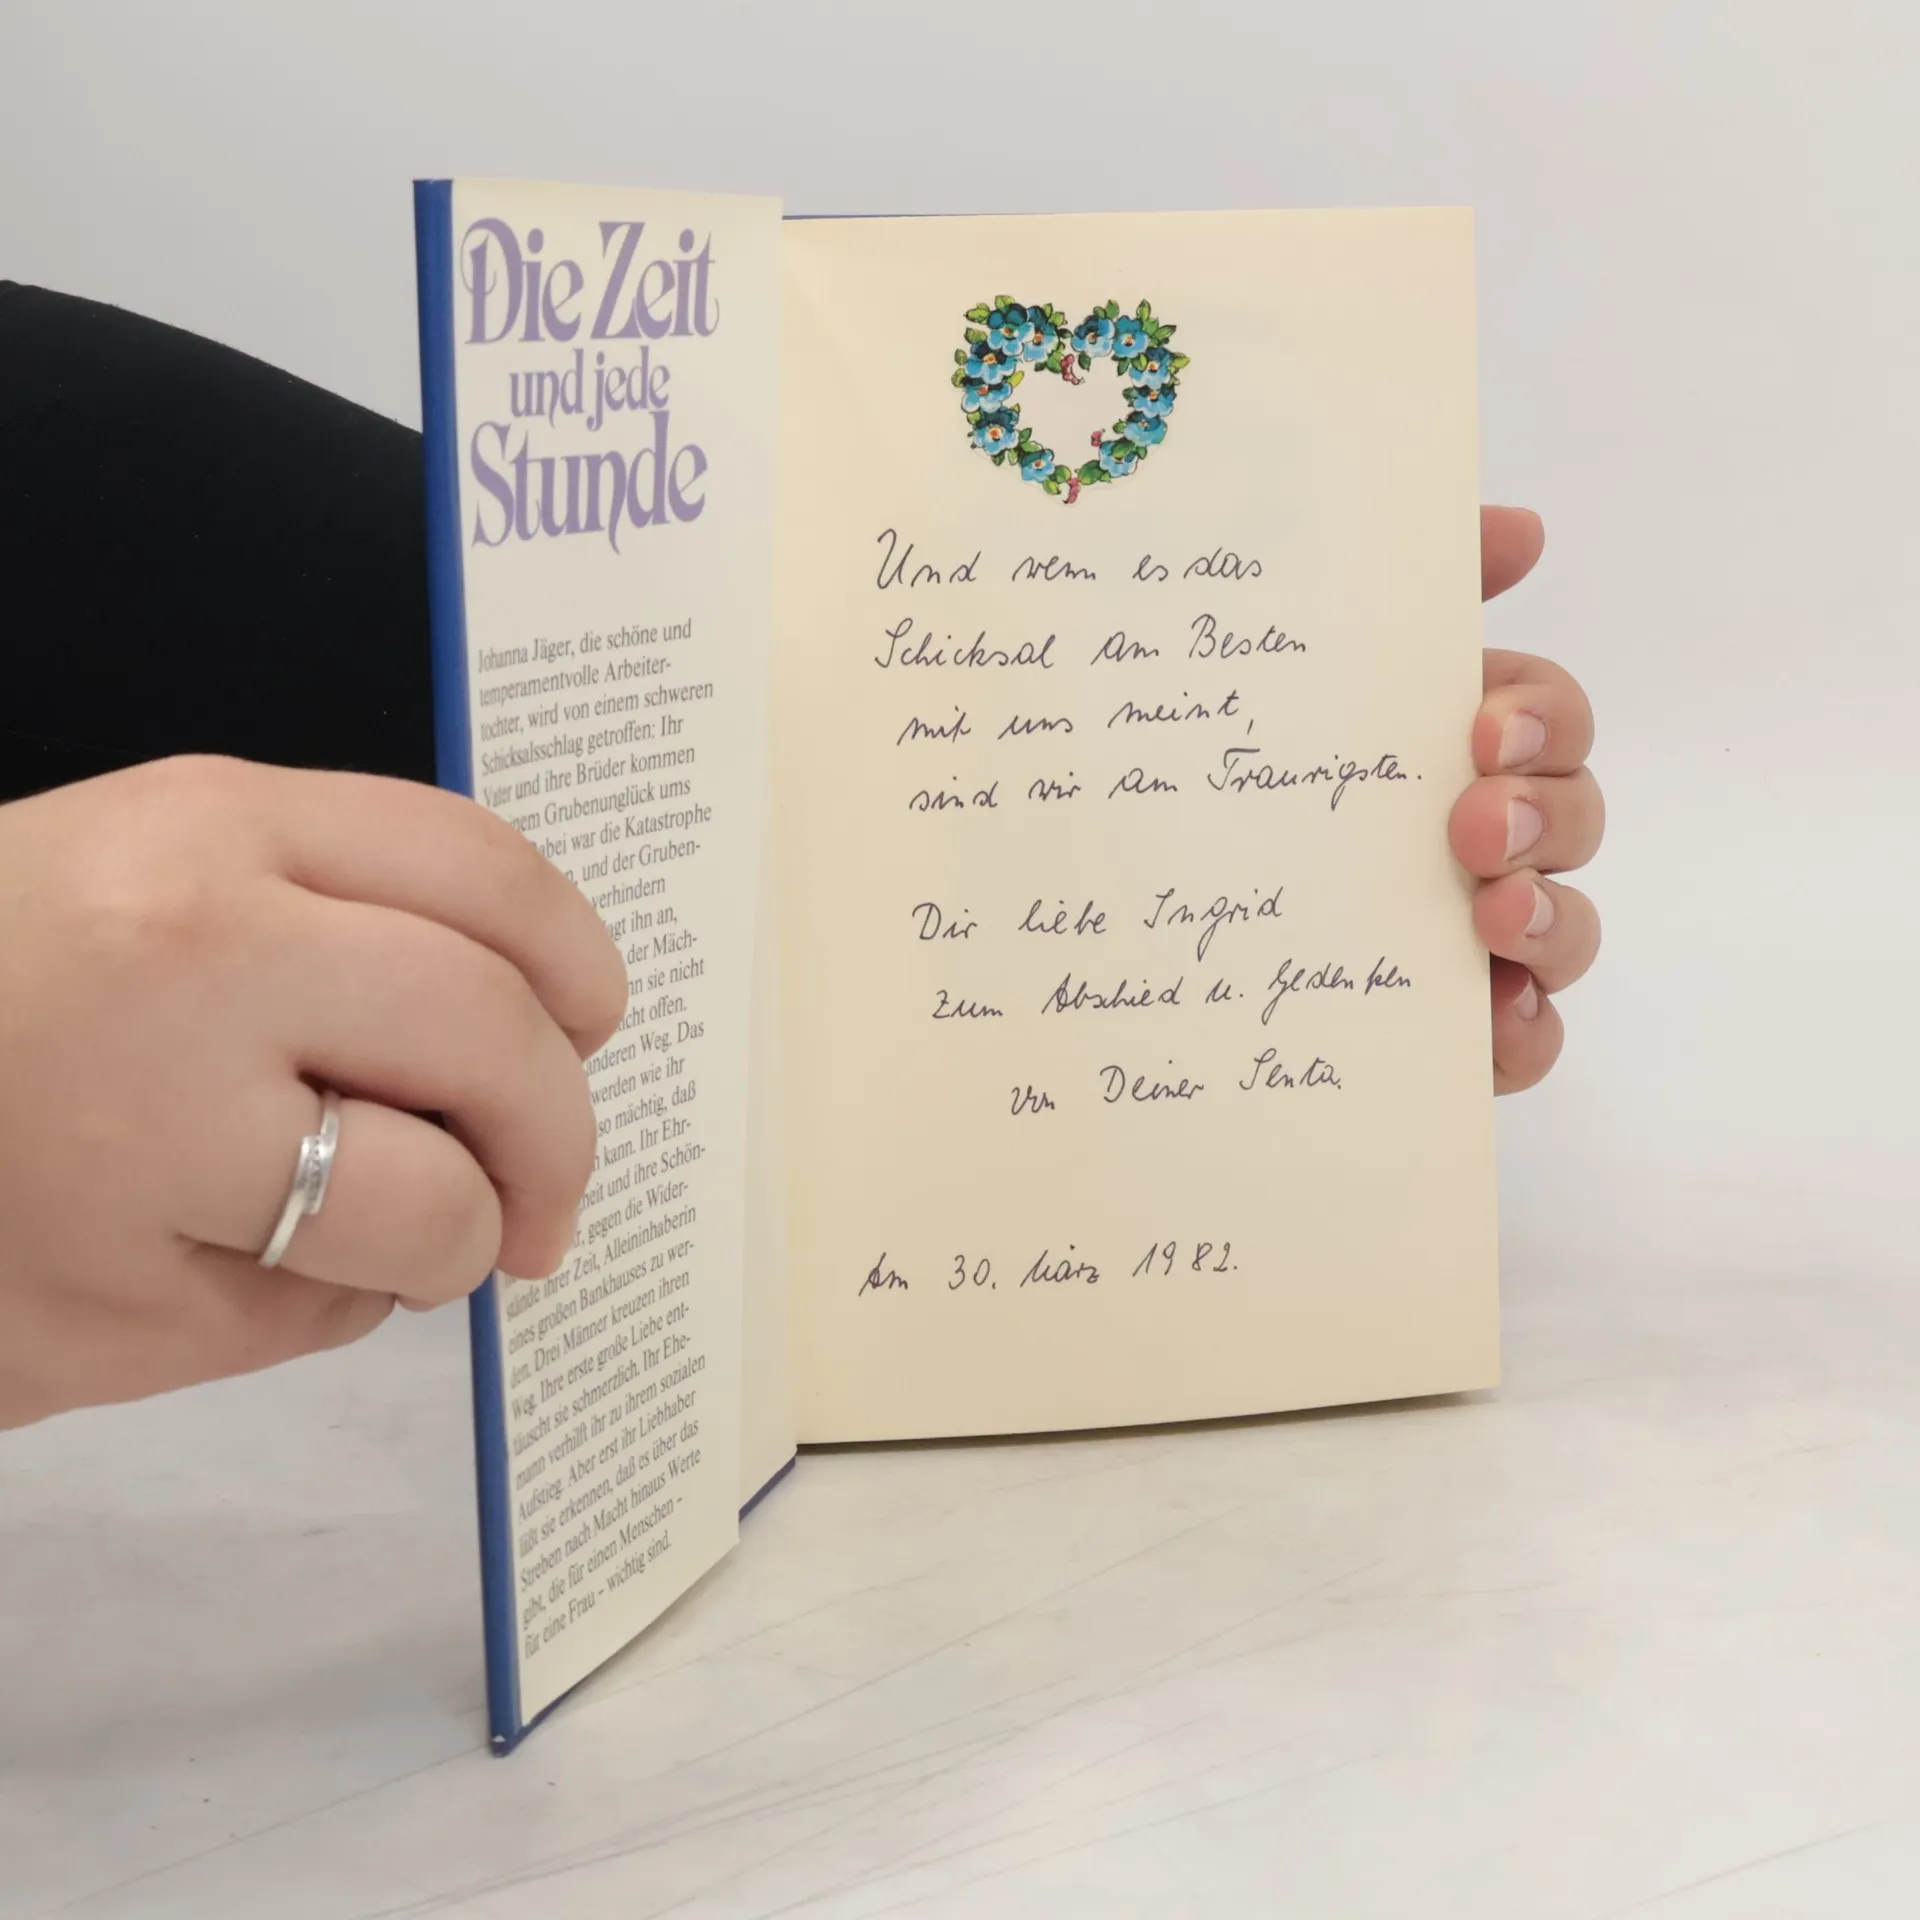 Die Zeit
und jede
Stunde
Johanna Jäger, die schöne und
temperamentvolle Arbeiter-
tochter, wird von einem schweren
Schicksalsschlag getroffen: Ihr
Vater und ihre Brüder kommen
Grubenunglück ums
war die Katastrophe
und der Gruben-
verhindern
ihn an,
der Mäch-
sie nicht
offen.
anderen Weg. Das
werden wie ihr
so mächtig, daß
kann. Ihr Ehr-
und ihre Schön-
gegen die Wider-
stände ihrer Zeit, Alleininhaberin
eines großen Bankhauses zu wer-
den. Drei Männer kreuzen ihren
Weg. Ihre erste große Liebe ent-
täuscht sie schmerzlich. Ihr Ehe-
mann verhilft ihr zu ihrem sozialen
Aufstieg. Aber erst ihr Liebhaber
läßt sie erkennen, daß es über das
Streben nach Macht hinaus Werte
gibt, die für einen Menschen –
für eine Frau – wichtig sind.
Und wenn es das
Schicksal am Besten
mit uns meint,
sind wir am Traurigsten.
Dir liebe Ingrid
zum Abschied u. Gedenken
von Deiner Senta.
Am 30. März 1982.